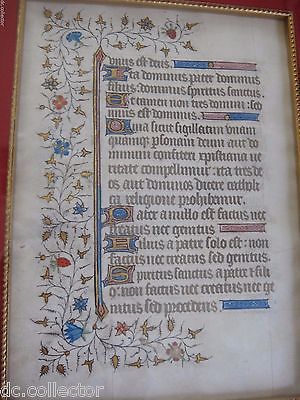 dc.collector
unus est deus.
Ita dominus pater dominus
filius: dominus spiritus sanctus.
Et tamen non tres domini: sed
unus est dominus.
Quia sicut sigillatim unam
quamque psonam deum aut do
minum confiteri xpistiana ue
ritate compellimur: ita tres de
os aut dominos dicere catholi
ca religione prohibemur.
Pater a nullo est factus nec
creatus nec genitus
Filius a patre solo est: non
factus nec creatus sed genitus
Spiritus sanctus a patre et fili
o: non factus nec creatus nec ge
nitus sed procedens.
dc.collector